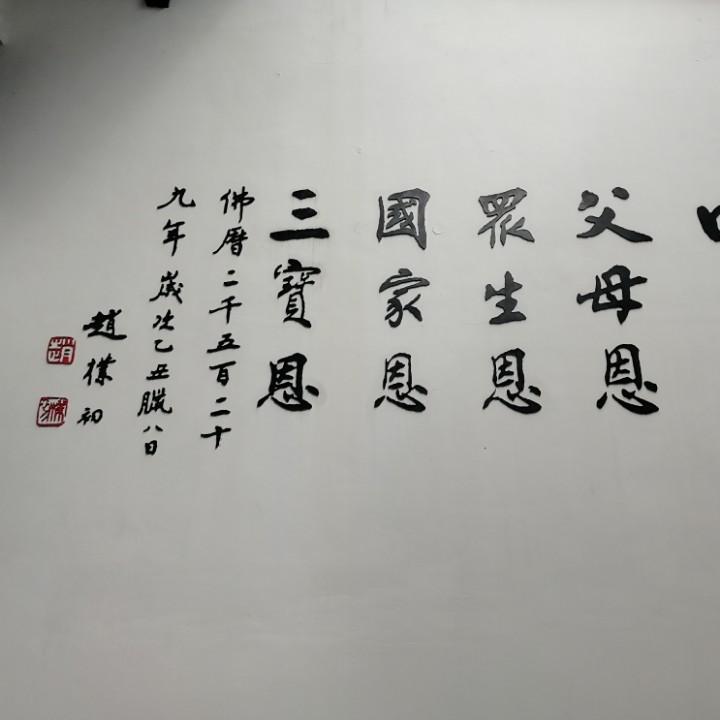 父母恩
眾生恩
國家恩
三寶恩
佛曆二千五百二十
九年歲次乙丑臘八日
趙樸初